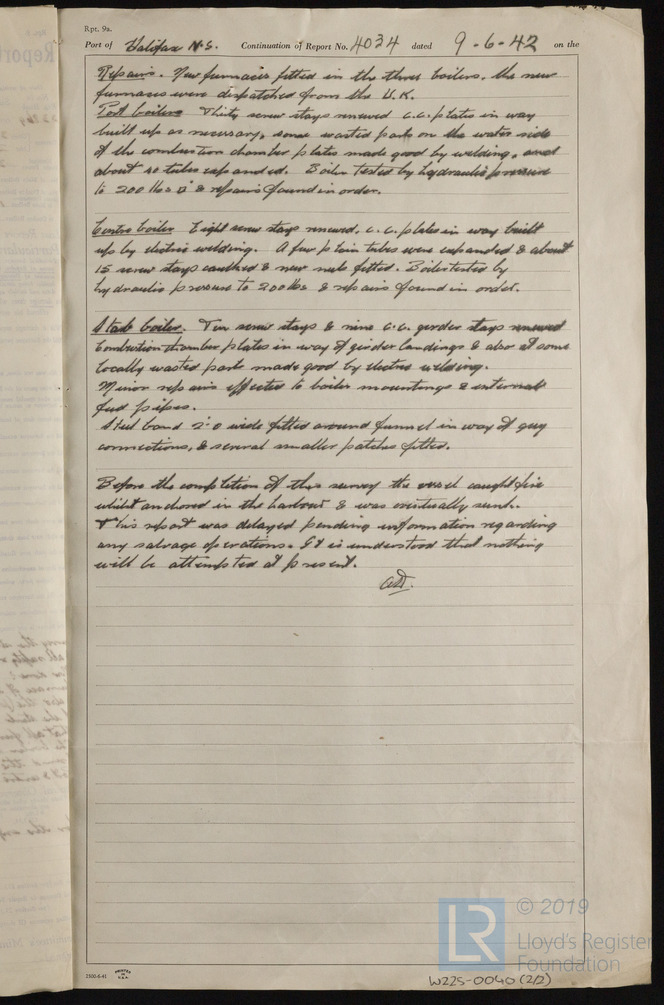 Rpt. 9a.
Port of Halifax N.S. Continuation of Report No. 4034 dated 9-6-42 on the
Repairs. New furnaces fitted in the three boilers, the new
furnaces were dispatched from the U.K.
Port boiler Thirty screw stays renewed c.c. plates in way
built up as necessary, some wasted parts on the water side
of the combustion chamber plates made good by welding, and
about 40 tubes expanded. Boiler tested by hydraulic pressure
to 200 lbs □" & repairs found in order.
Centre boiler Eight screw stays renewed, c.c. plates in way built
up by electric welding. A few plain tubes were expanded & about
15 screw stays caulked & new nuts fitted. Boiler tested by
hydraulic pressure to 200 lbs & repairs found in order.
Starb boiler. Ten screw stays & nine c.c. girder stays renewed
Combustion chamber plates in way of girder landings & also at some
locally wasted parts made good by electric welding.
Minor repairs effected to boiler mountings & internal
feed pipes.
Steel band 2'.0 wide fitted around funnel in way of guy
connections, & several smaller patches fitted.
Before the completion of this survey the vessel caught fire
whilst anchored in the harbour & was eventually sunk.
This report was delayed pending information regarding
any salvage operations. It is understood that nothing
will be attempted at present.
2500-6-41
PRINTED
© 2019
LR
Lloyd's Register
Foundation
W225-0040 (2/2)